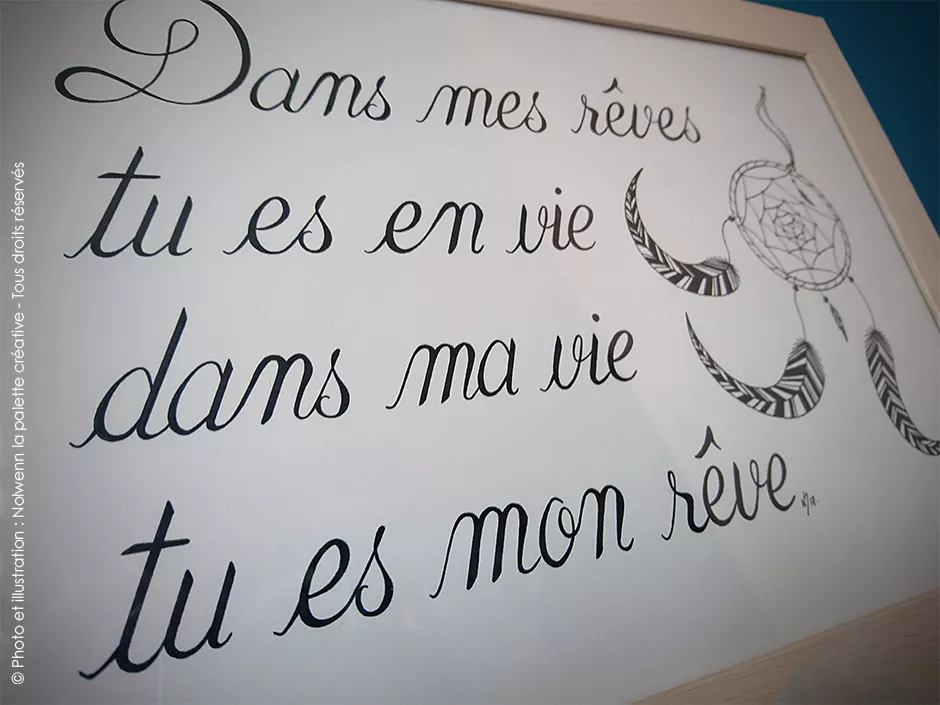 Dans mes rêves
tu es en vie
dans ma vie
tu es mon rêve.
© Photo et illustration : Nolwenn la palette créative - Tous droits réservés